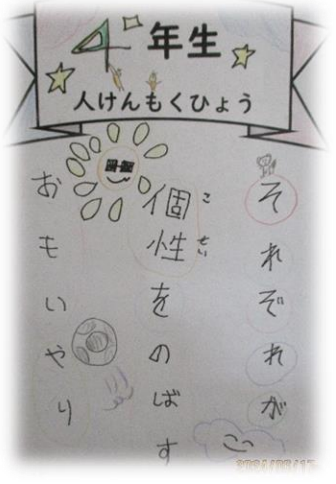 4年生
人けんもくひょう
それぞれが
個性をのばす
こせい
おもいやり